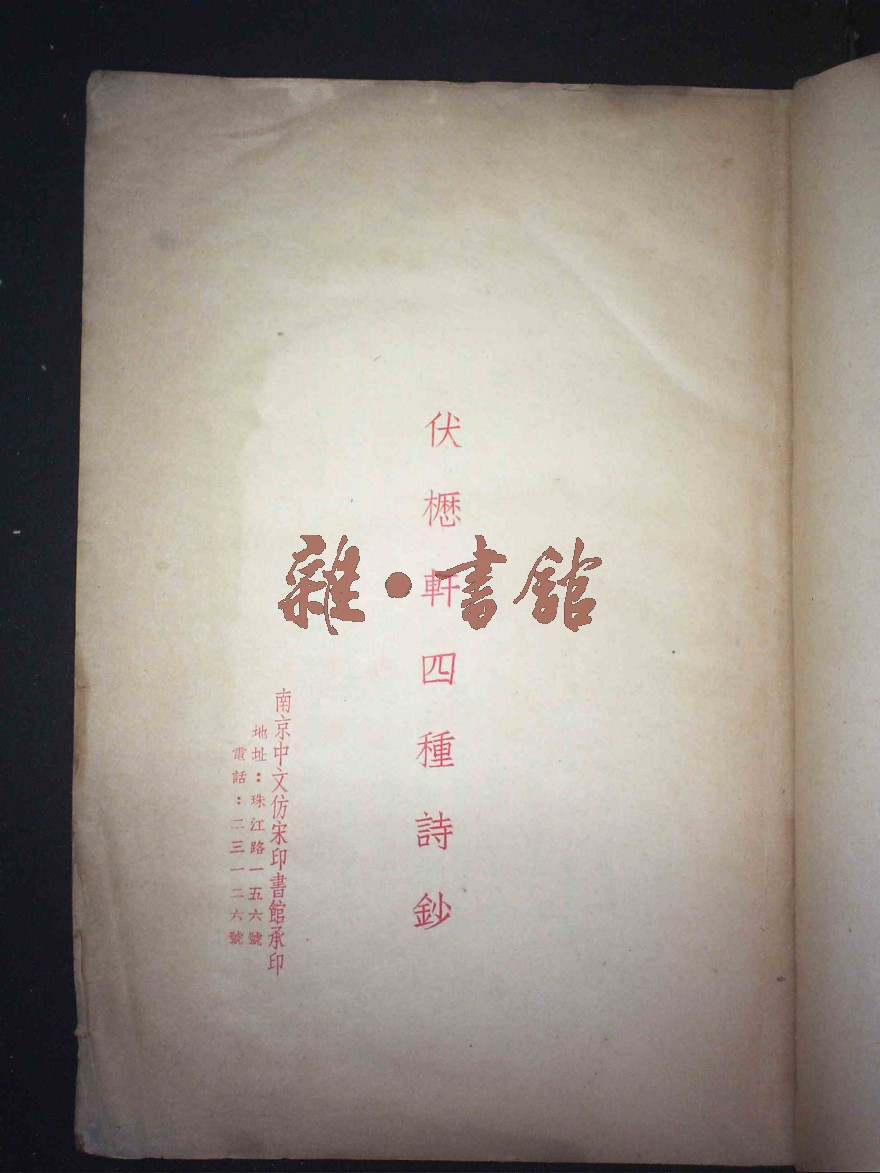 伏櫪軒四種詩鈔
雜·書館
南京中文仿宋印書館承印
地址：珠江路一五六號
電話：二三一二六號